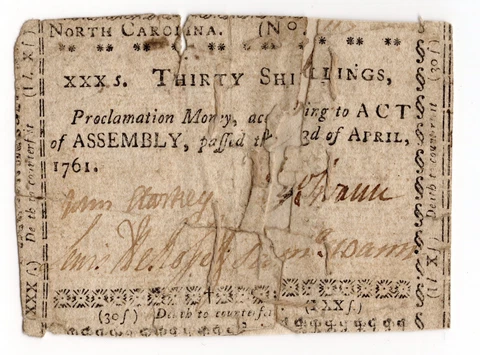 NORTH CAROLINA. (No.
XXX s. THIRTY SHILLINGS,
Proclamation Money, according to ACT
of ASSEMBLY, passed the 23d of APRIL,
1761.
John Starkey Swann
Lewis Saml Swann
(30ſ) Death to counterfeit (XXXſ)
(XXXſ) Death to counterfeit
Death to counterfeit (30ſ)